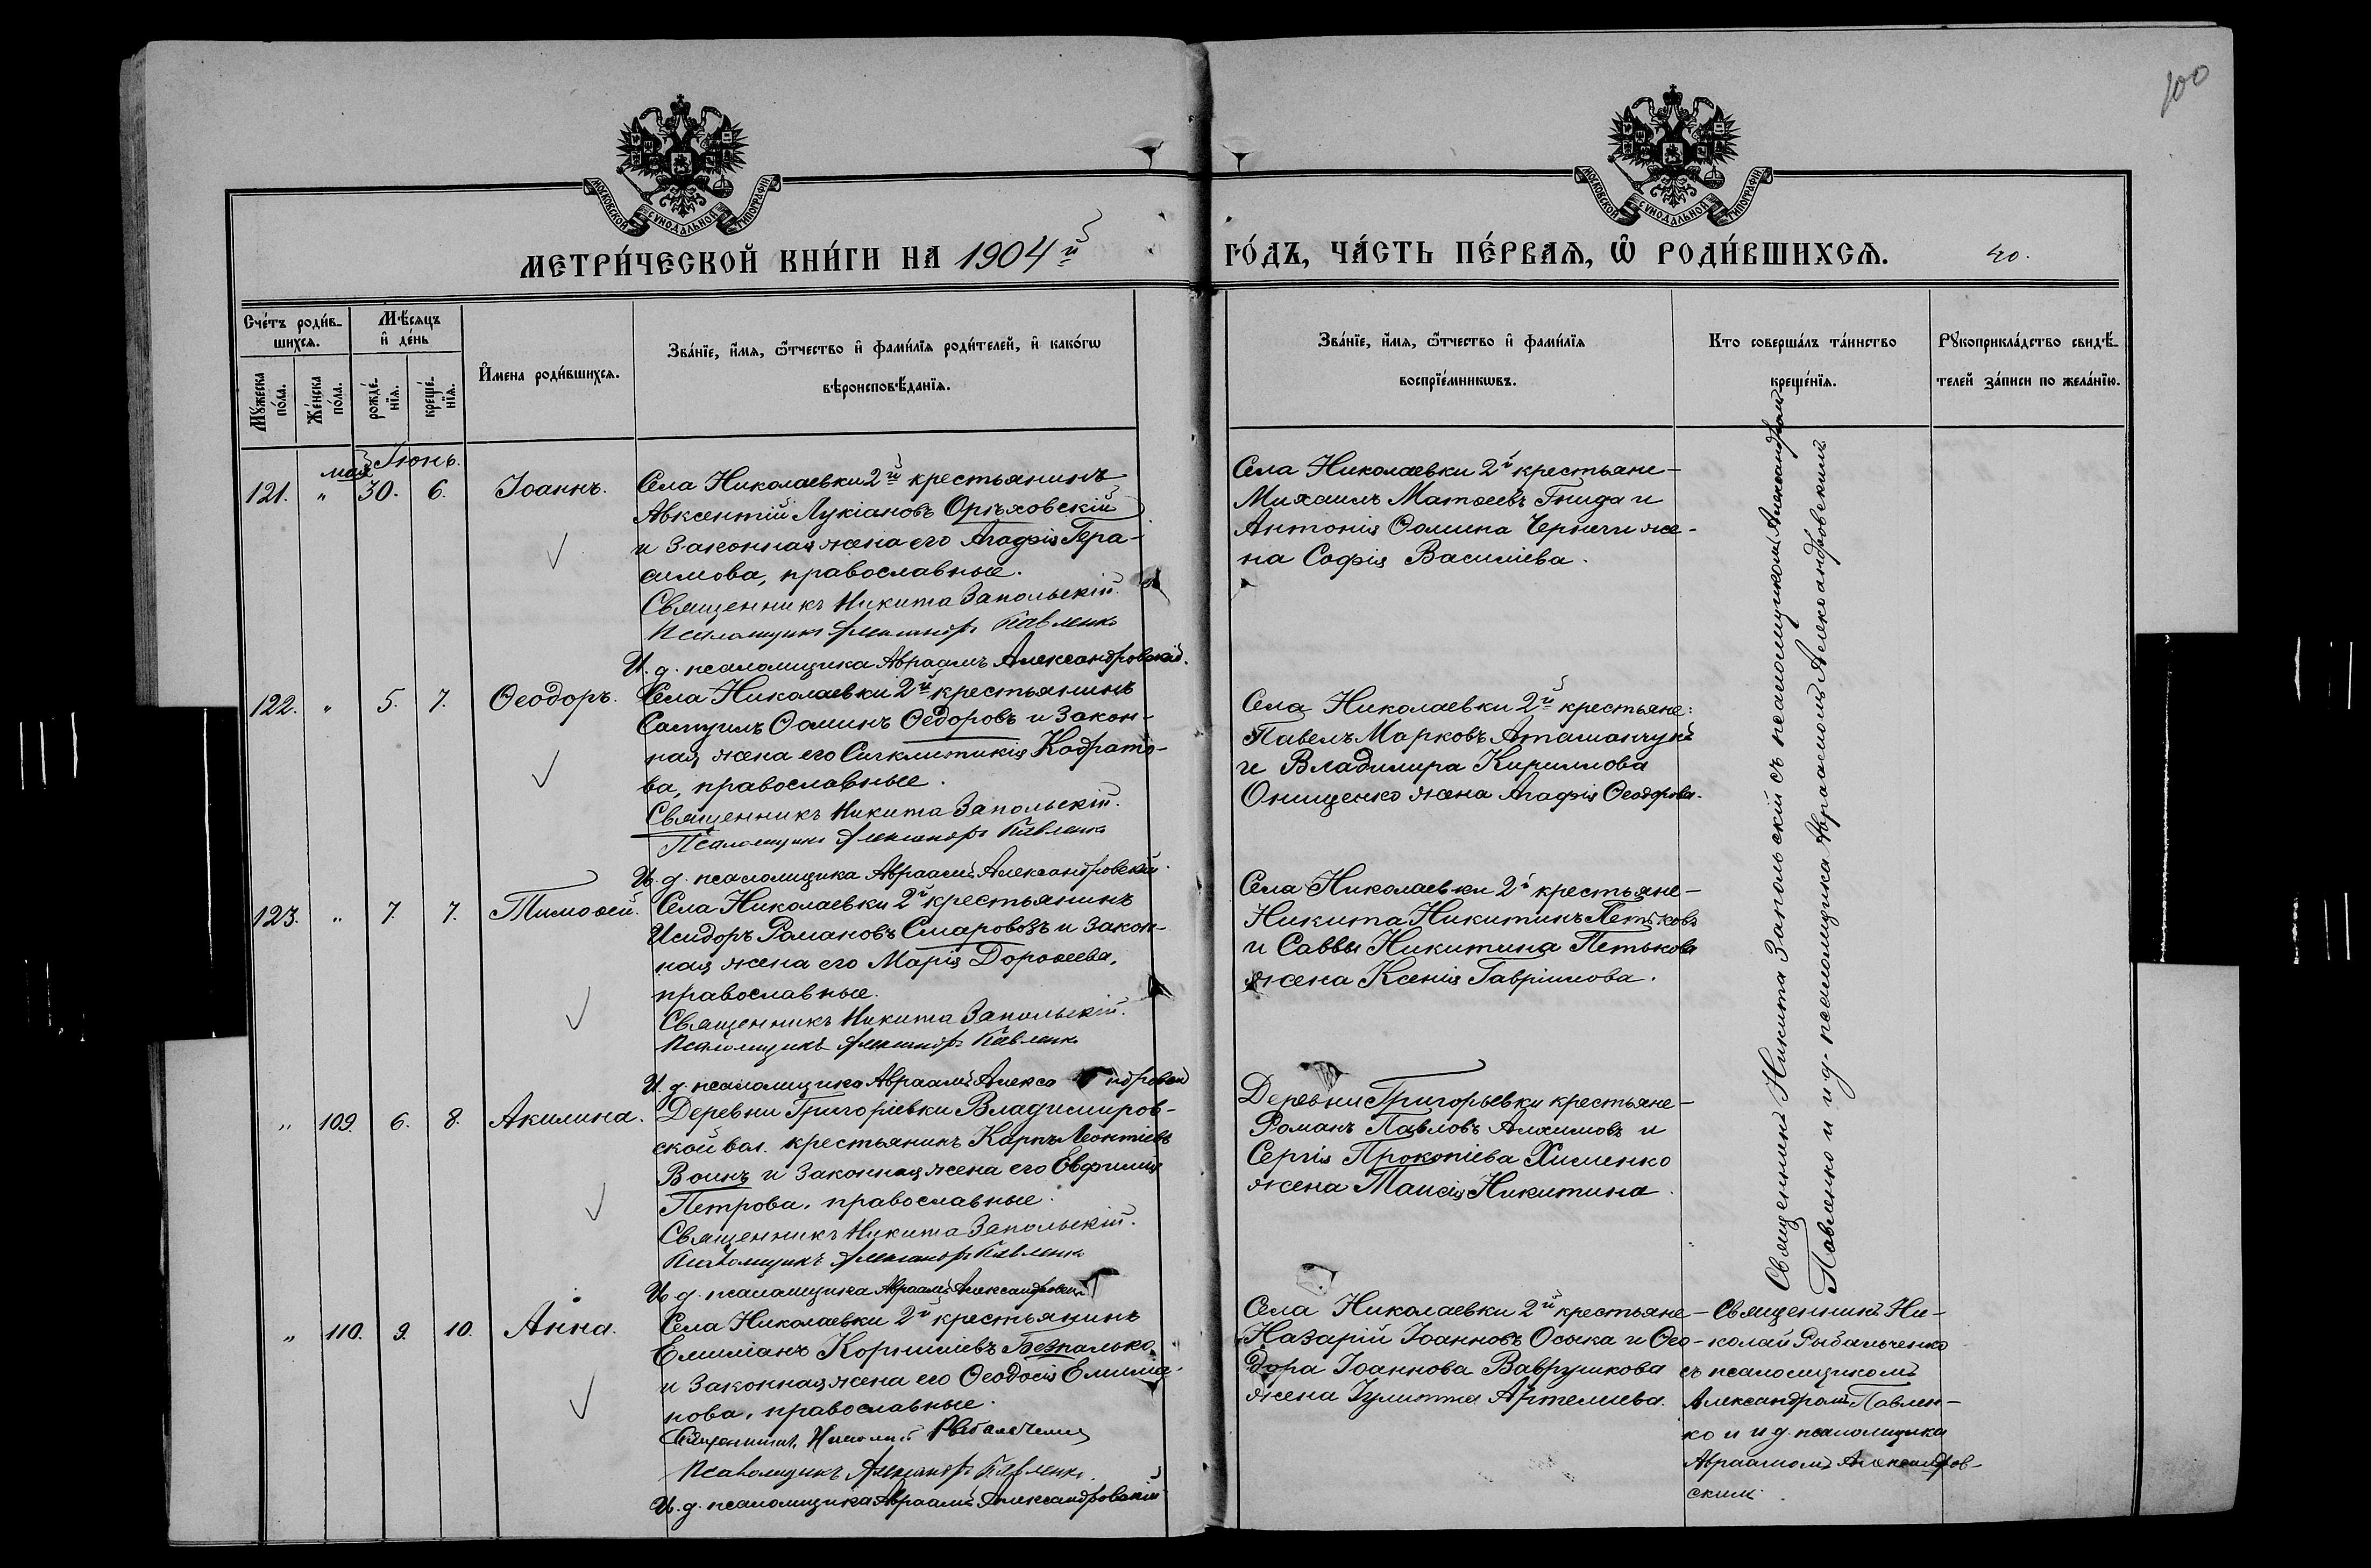 100
МОСКОВСКОЙ СУНОДАЛЬНОЙ ТИПОГРАФІИ
МОСКОВСКОЙ СУНОДАЛЬНОЙ ТИПОГРАФІИ
МЕТРИ́ЧЕСКОЙ КНИ́ГИ НА 1904й
ГО́ДЪ, ЧА́СТЬ ПЕ́РВАѦ, Ѡ РОДИ́ВШИХСѦ.
40.
Сче́тъ роди́в-
шихсѧ.
Мѣ́сѧцъ
и҆ де́нь
Мꙋ́жеска
по́ла.
Же́нска
по́ла.
рожде́-
нїѧ.
креще́-
нїѧ.
И҆мена роди́вшихсѧ.
Зва́нїе, и҆́мѧ, ѻ҆́тчество и҆ фами́лїѧ роди́телей, и҆ како́гѡ
вѣроисповѣ́данїѧ.
Зва́нїе, и҆́мѧ, ѻ҆́тчество и҆ фами́лїѧ
воспрїе́мникѡвъ.
Кто соверша́лъ та́инство
креще́нїѧ.
Рꙋкоприкла́дство свидѣ́-
телей за́писи по жела́нїю.
мая Іюнь.
121. " 30. 6. Іоаннъ.
Села Николаевки 2й крестьянинъ
Авксентій Лукіановъ Орѣховскій
и законная жена его Агафія Гера-
симова, православные.
Священникъ Никита Запольскій.
Псаломщикъ Александръ Павленко
И. д. псаломщика Авраамъ Александровскій.
Села Николаевки 2й крестьяне-
Михаилъ Матѳеевъ Гнида и
Антонія Ѳомина Чернеги же-
на Софія Василіева.
122. " 5. 7. Ѳеодоръ.
Села Николаевки 2й крестьянинъ
Ѳоминъ Ѳедоровъ и закон-
ная жена его Синклитикія Кодрато-
ва, православные.
Священникъ Никита Запольскій.
Псаломщикъ Александръ Павленко
И. д. псаломщика Авраамъ Александровскій.
Села Николаевки 2й крестьяне:
Павелъ Марковъ Атаманчукъ
и Владимира Кириллова
Онищенко жена Агафія Ѳеодорова.
123. " 7. 7. Тимоѳей.
Села Николаевки 2й крестьянинъ
Исидоръ Романовъ Смаровозъ и закон-
ная жена его Марія Дороѳеева,
православные.
Священникъ Никита Запольскій.
Псаломщикъ Александръ Павленко
И. д. псаломщика Авраамъ Александровскій
Села Николаевки 2й крестьяне-
Никита Никитинъ Петьковъ
и Саввы Никитина Петькова
жена Ксенія Гавріилова.
" 109. 6. 8. Акилина.
Деревни Григоріевки Владимиров-
ской вол. крестьянинъ Карпъ Леонтіевъ
Воинъ и законная жена его Евфимія
Петрова, православные.
Священникъ Никита Запольскій.
Псаломщикъ Александръ Павленко
И. д. псаломщика Авраамъ Александровскій
Деревни Григорьевки крестьяне-
Романъ Павловъ Алхимовъ и
Сергія Прокопіева Хименко
жена Таисія Никитина.
Священникъ Никита Запольскій съ псаломщикомъ Александромъ
Павленко и и. д. псаломщика Авраамомъ Александровскимъ
" 110. 9. 10. Анна.
Села Николаевки 2й крестьянинъ
Емиліанъ Корниліевъ Безпалько
и законная жена его Ѳеодосія Емиліа-
нова, православные.
Священникъ Николай Рыбальченко
Псаломщикъ Александръ Павленко.
И. д. псаломщика Авраамъ Александровскій
Села Николаевки 2й крестьяне-
Назарій Іоанновъ Осыка и Ѳео-
дора Іоаннова Ваврушкова
жена Іулитта Артемиева.
Священникъ Ни-
колай Рыбальченко
съ псаломщикомъ
Александромъ Павлен-
ко и и д. псаломщика
Авраамомъ Александров-
скимъ.